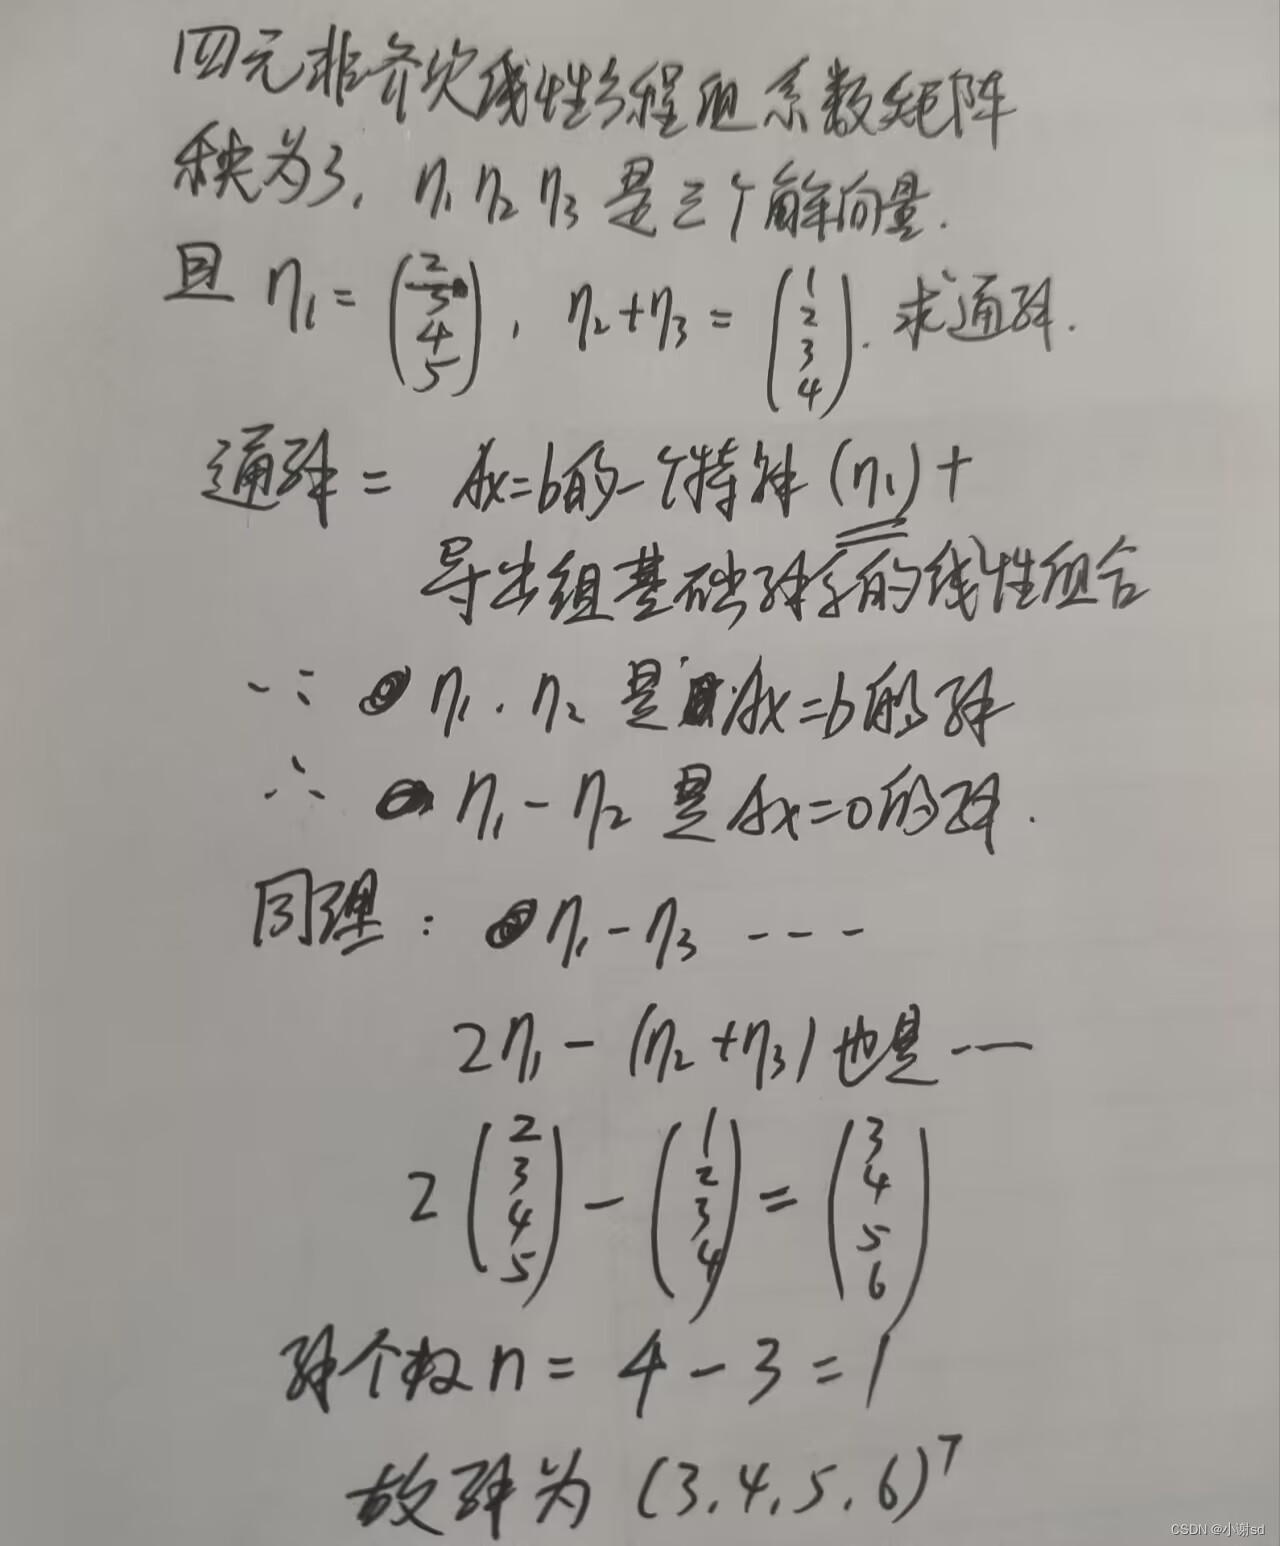 四元非齐次线性方程组系数矩阵
秩为3, η₁ η₂ η₃ 是三个解向量.
且 η₁ = (2 3 4 5), η₂+η₃ = (1 2 3 4). 求通解.
通解 = Ax=b的一个特解 (η₁) +
导出组基础解系的线性组合
∵ η₁. η₂ 是 Ax=b的解
∴ η₁-η₂ 是 Ax=0的解.
同理: η₁-η₃ ---
2η₁-(η₂+η₃) 也是 ---
2 (2 3 4 5) - (1 2 3 4) = (3 4 5 6)
解个数 n = 4-3=1
故解为 (3.4.5.6)ᵀ
CSDN @小谢sd